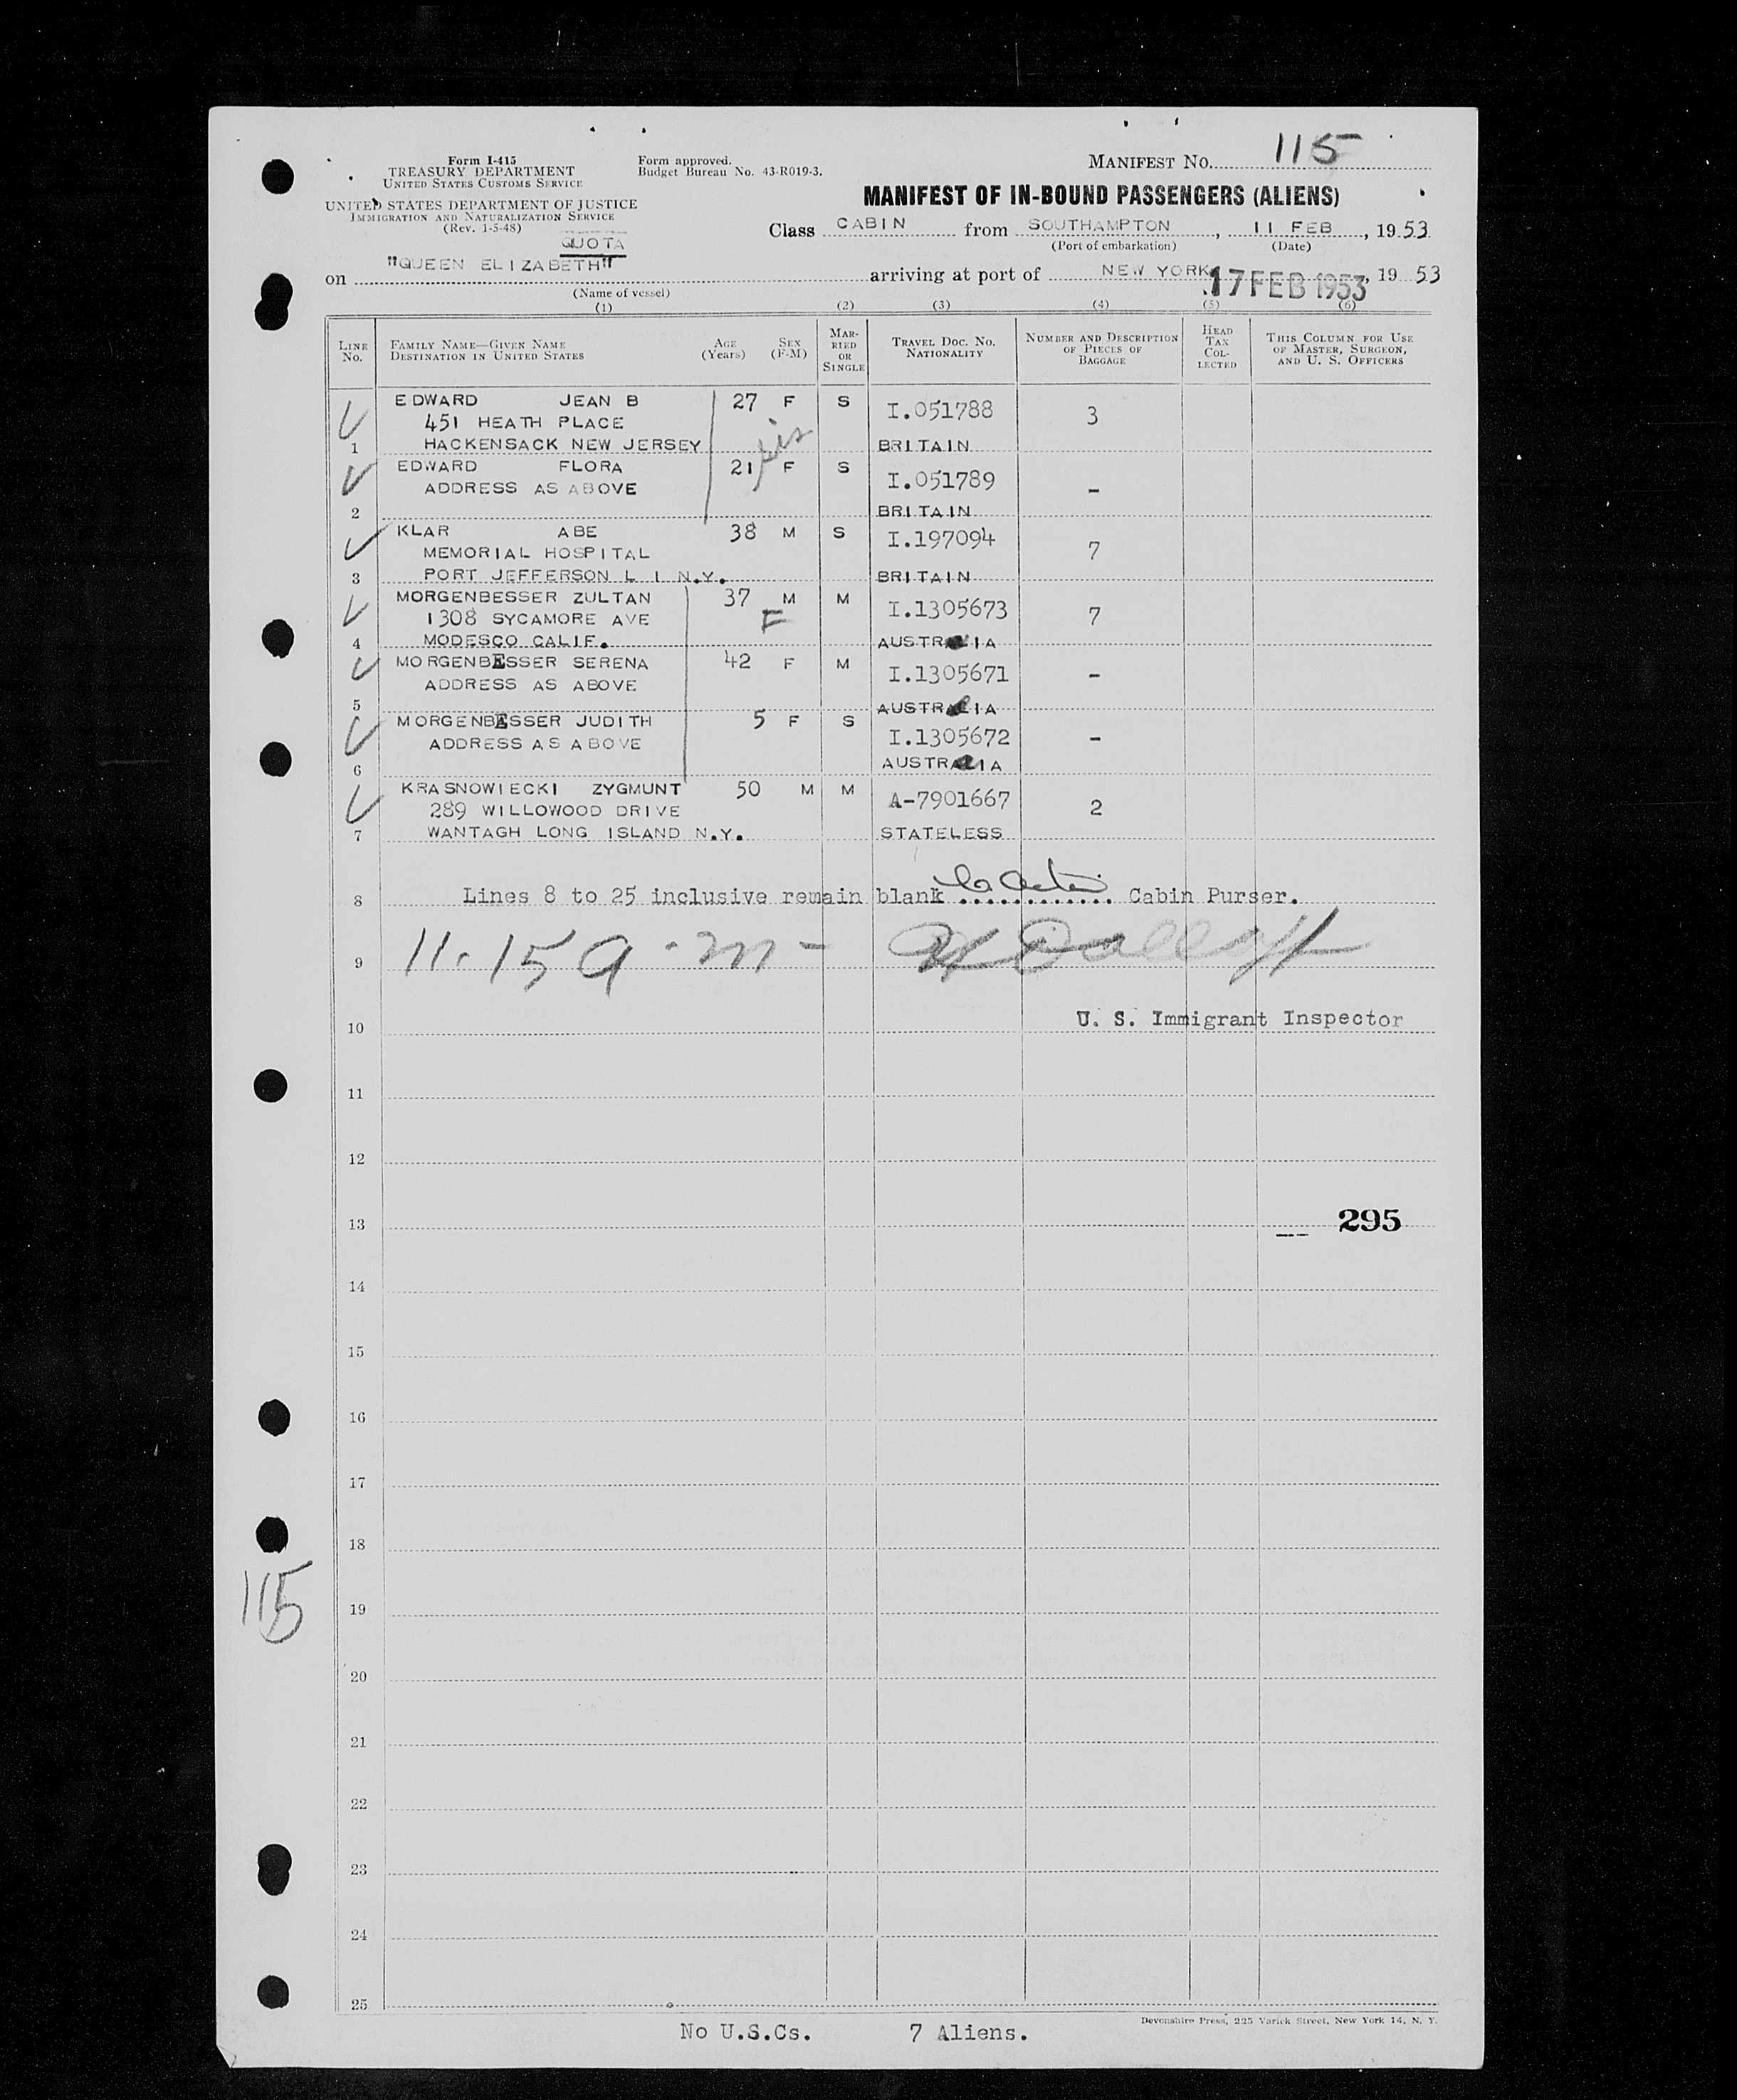 Form I-415
TREASURY DEPARTMENT
UNITED STATES CUSTOMS SERVICE
UNITED STATES DEPARTMENT OF JUSTICE
IMMIGRATION AND NATURALIZATION SERVICE
(Rev. 1-5-48)
Form approved.
Budget Bureau No. 43-R019-3.
MANIFEST NO. 115
MANIFEST OF IN-BOUND PASSENGERS (ALIENS)
QUOTA
Class CABIN from SOUTHAMPTON, 11 FEB, 1953
(Port of embarkation) (Date)
on "QUEEN ELIZABETH" arriving at port of NEW YORK 17 FEB 1953, 1953
(Name of vessel)
(1) (2) (3) (4) (5) (6)
LINE No. FAMILY NAME—GIVEN NAME DESTINATION IN UNITED STATES AGE (Years) SEX (F-M) MARRIED OR SINGLE TRAVEL DOC. NO. NATIONALITY NUMBER AND DESCRIPTION OF PIECES OF BAGGAGE HEAD TAX COLLECTED THIS COLUMN FOR USE OF MASTER, SURGEON, AND U. S. OFFICERS
EDWARD JEAN B 27 F S I.051788 3
451 HEATH PLACE
sis
1 HACKENSACK NEW JERSEY BRITAIN
EDWARD FLORA 21 F S I.051789 -
ADDRESS AS ABOVE
2 BRITAIN
KLAR ABE 38 M S I.197094 7
MEMORIAL HOSPITAL
3 PORT JEFFERSON L I N.Y. BRITAIN
MORGENBESSER ZULTAN 37 M M I.1305673 7
1308 SYCAMORE AVE F
4 MODESCO CALIF. AUSTRALIA
MORGENBESSER SERENA 42 F M I.1305671 -
ADDRESS AS ABOVE
5 AUSTRALIA
MORGENBESSER JUDITH 5 F S I.1305672 -
ADDRESS AS ABOVE
6 AUSTRALIA
KRASNOWIECKI ZYGMUNT 50 M M A-7901667 2
289 WILLOWOOD DRIVE
7 WANTAGH LONG ISLAND N.Y. STATELESS
8 Lines 8 to 25 inclusive remain blank ............ Cabin Purser.
9 11.15 a.m-
10 U. S. Immigrant Inspector
11
12
13 295
14
15
16
17
18
115
19
20
21
22
23
24
25
Devonshire Press, 225 Varick Street, New York 14, N. Y.
No U.S.Cs. 7 Aliens.